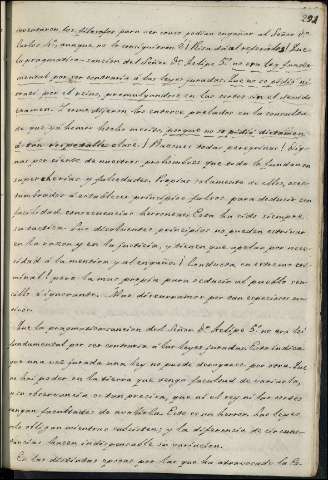 291
inventaron los filosofos para ver como podian engañar al Señor Dn.
Carlos 4º, aunque no lo consiguieron? ¡Risa da al referirlo! Que
la pragmatica-sancion del Señor Dn. Felipe 5º no era ley funda-
mental por ser contraria á las leyes juradas. Que no se pidió ni
trató por el reino, promulgandose en las cortes sin el devido
examen. Y como dijeron los catorce prelados en la consulta
de que ya hemos hecho merito, porque no se pidió dictamen
á tan respetable clase. ¡Razones todas peregrinas! dig-
nas por cierto de nuestros prohombres que todo lo fundan en
supercherias y falsedades. Propias solamente de ellos, acos-
tumbrados á establecer principios falsos para deducir con
facilidad consecuencias herroneas. Esta ha sido siempre
su tactica. Sus disolventes principios no pueden estrivar
en la razon y en la justicia, y tienen que apelar por nece-
cidad á la mentira y al engaño. ¡Conducta en estremo cri-
minal! pero la mas propia para seducir al pueblo sen-
cillo é ignorante. Mas discurramos por tan especiosos mo-
tivos.
Que la pragmatica sancion del Señor Dn. Felipe 5º no era lei
fundamental por ser contraria á las leyes juradas. Esto indica
que una vez jurada una ley no puede derogarse por otra. Que
no hai poder en la tierra que tenga facultad de variarla,
su observancia es tan precisa, que ni el rey ni las cortes
tengan facultades de anularlas. Esto es un herror. Las leyes
solo obligan mientras subsisten; y la diferencia de circuns-
tancias hacen indispensable su variacion.
En las distintas epocas por las que ha atravesado la Es-